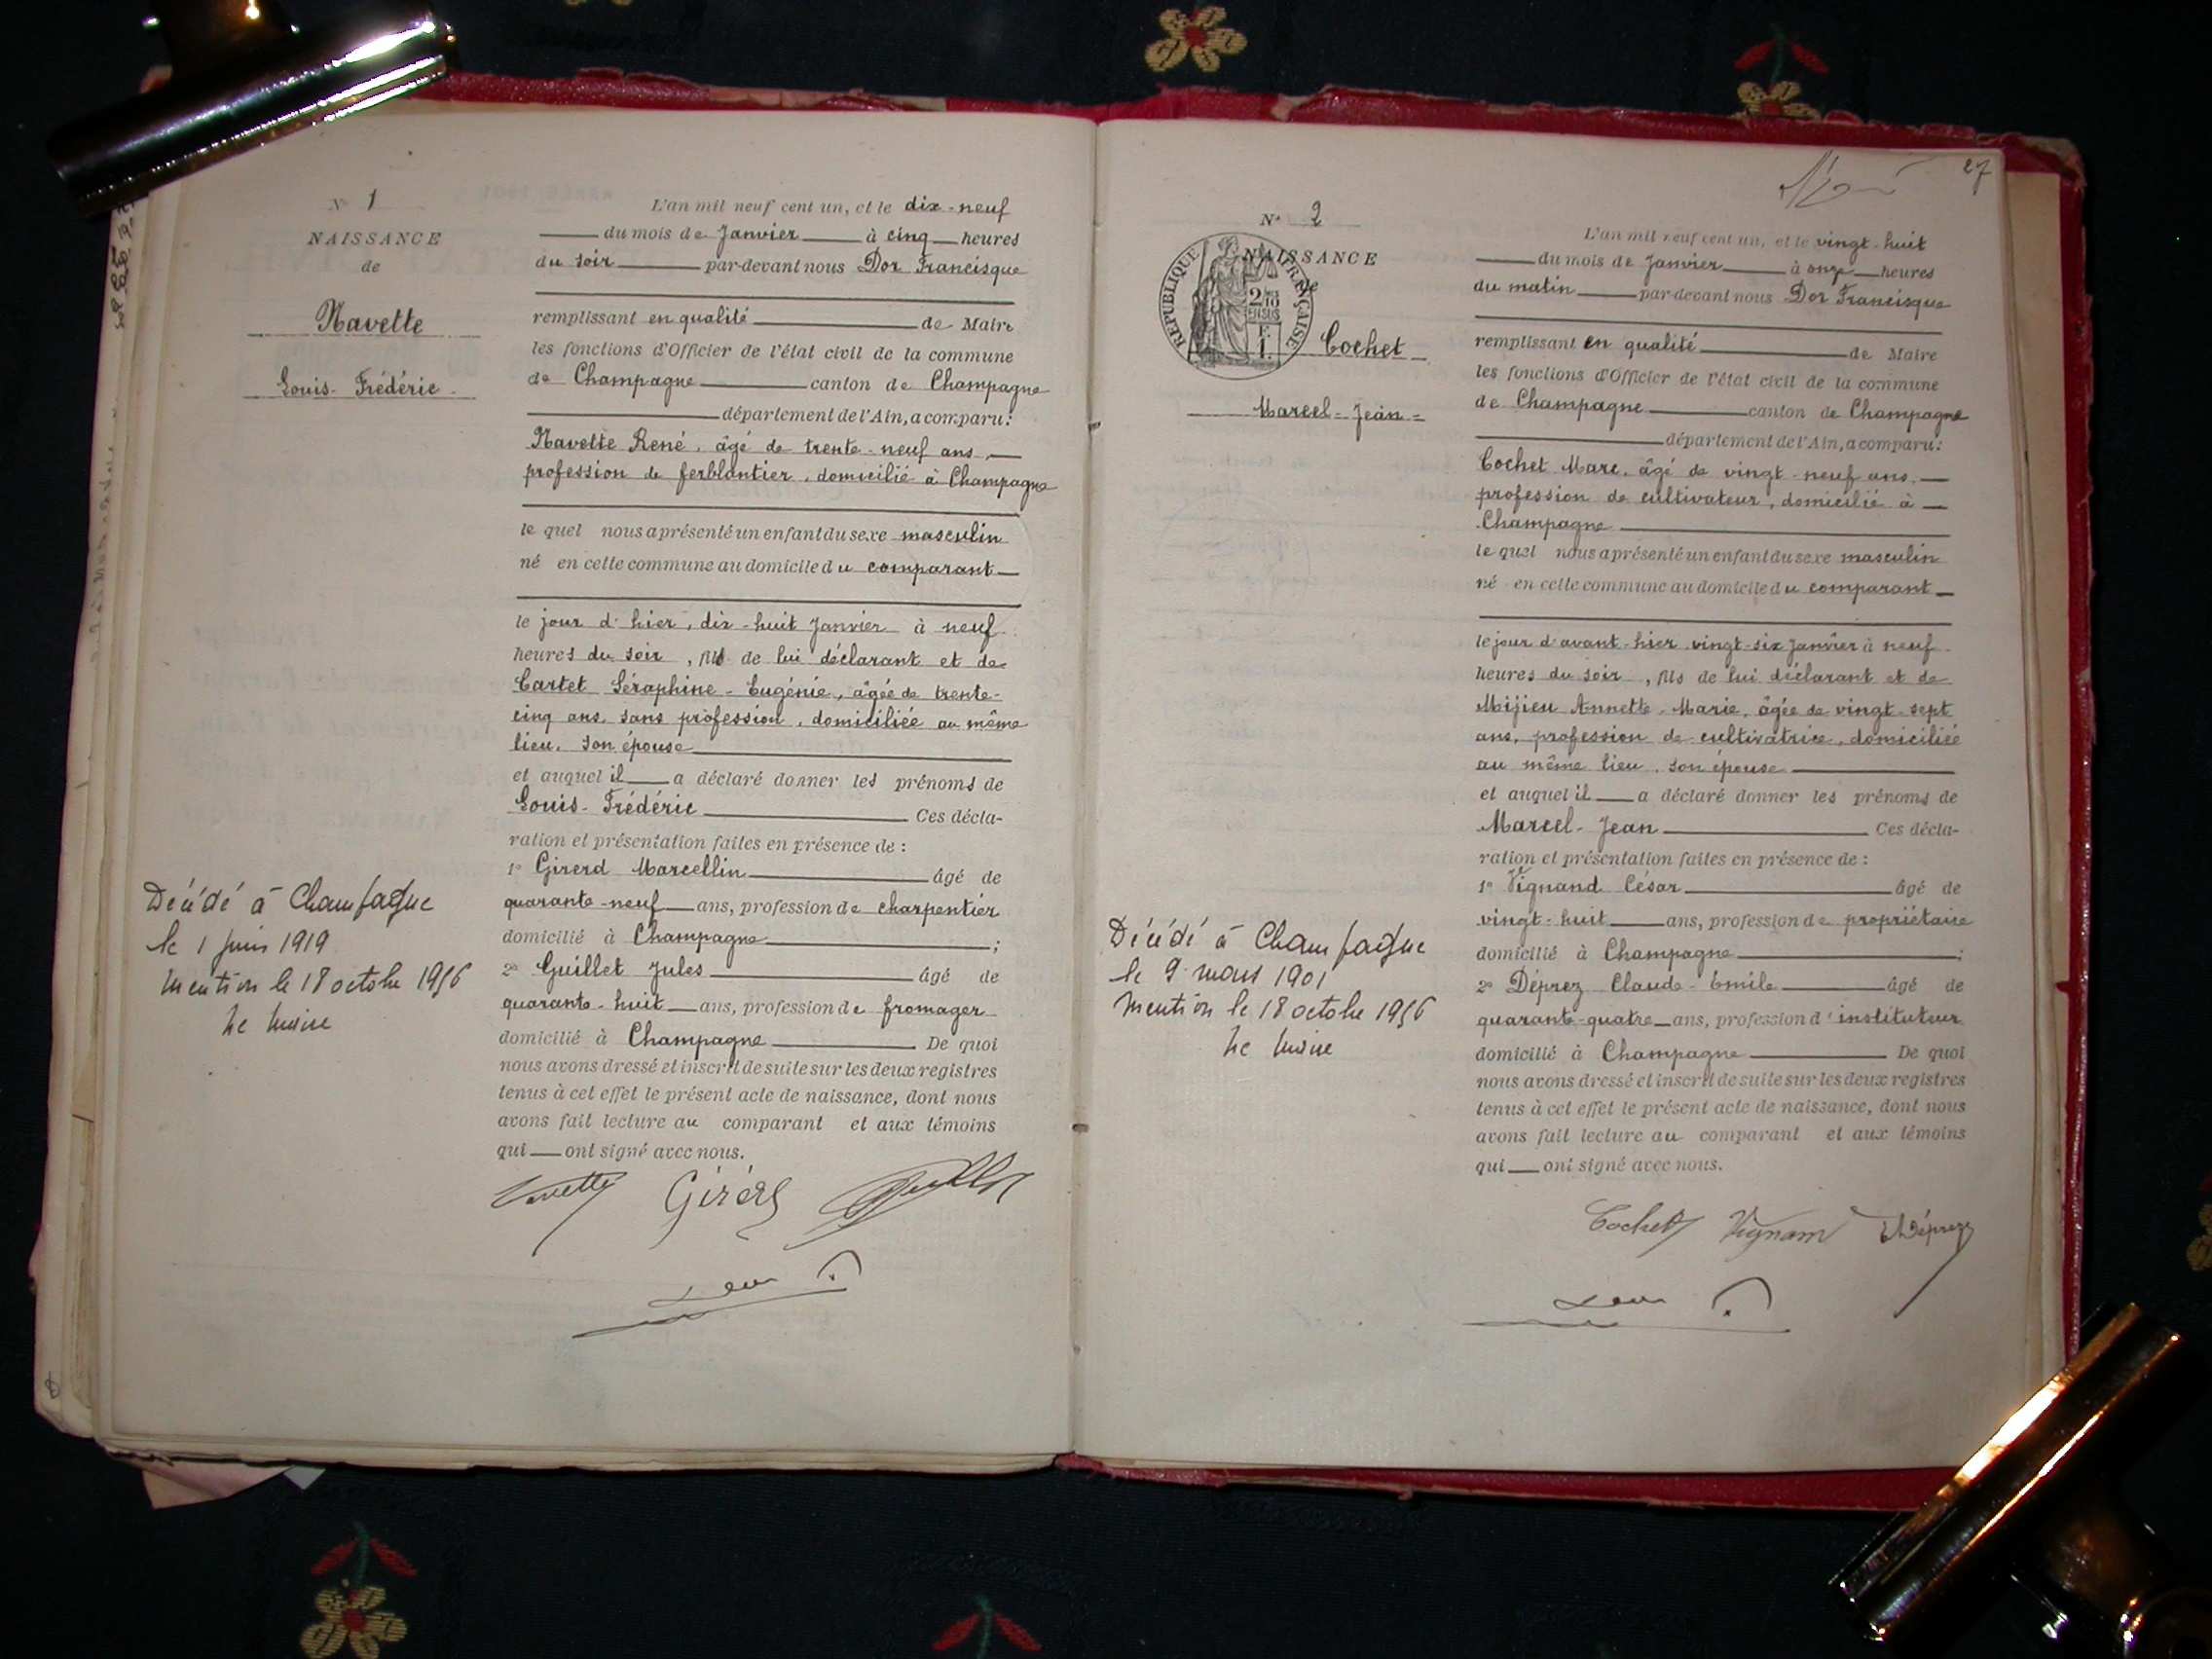 N° 1
NAISSANCE
de
Navette
Louis-Frédéric
L'an mil neuf cent un, et le dix-neuf
du mois de Janvier à cinq heures
du soir par-devant nous Dor Francisque
remplissant en qualité de Maire
les fonctions d'Officier de l'état civil de la commune
de Champagne canton de Champagne
département de l'Ain, a comparu:
Navette René, âgé de trente-neuf ans,
profession de ferblantier, domicilié à Champagne
le quel nous a présenté un enfant du sexe masculin
né en cette commune au domicile du comparant
le jour d'hier, dix-huit Janvier à neuf
heures du soir, fils de lui déclarant et de
Cartet Séraphine-Eugénie, âgée de trente-
cinq ans, sans profession, domiciliée au même
lieu, son épouse
et auquel il a déclaré donner les prénoms de
Louis-Frédéric Ces décla-
ration et présentation faites en présence de :
1° Girerd Marcellin âgé de
quarante-neuf ans, profession de charpentier
domicilié à Champagne ;
2° Guillet Jules âgé de
quarante-huit ans, profession de fromager
domicilié à Champagne De quoi
nous avons dressé et inscrit de suite sur les deux registres
tenus à cet effet le présent acte de naissance, dont nous
avons fait lecture au comparant et aux témoins
qui ont signé avec nous.
Navette Girerd
Décédé à Champagne
le 1 juin 1919
Mention le 18 octobre 1956
Le Maire
27
N° 2
NAISSANCE
de
RÉPUBLIQUE FRANÇAISE
2/10
EN SUS
Cochet
Marcel-Jean
L'an mil neuf cent un, et le vingt-huit
du mois de Janvier à onze heures
du matin par-devant nous Dor Francisque
remplissant en qualité de Maire
les fonctions d'Officier de l'état civil de la commune
de Champagne canton de Champagne
département de l'Ain, a comparu:
Cochet Marc, âgé de vingt-neuf ans,
profession de cultivateur, domicilié à
Champagne
le quel nous a présenté un enfant du sexe masculin
né en cette commune au domicile du comparant
le jour d'avant-hier vingt-six Janvier à neuf
heures du soir, fils de lui déclarant et de
Mijieu Annette-Marie, âgée de vingt-sept
ans, profession de cultivatrice, domiciliée
au même lieu, son épouse
et auquel il a déclaré donner les prénoms de
Marcel-Jean Ces décla-
ration et présentation faites en présence de :
1° Vignand César âgé de
vingt-huit ans, profession de propriétaire
domicilié à Champagne ;
2° Déprez Claude-Émile âgé de
quarante-quatre ans, profession d'instituteur
domicilié à Champagne De quoi
nous avons dressé et inscrit de suite sur les deux registres
tenus à cet effet le présent acte de naissance, dont nous
avons fait lecture au comparant et aux témoins
qui ont signé avec nous.
Cochet Vignand Déprez
Décédé à Champagne
le 9 mars 1901
Mention le 18 octobre 1956
Le Maire